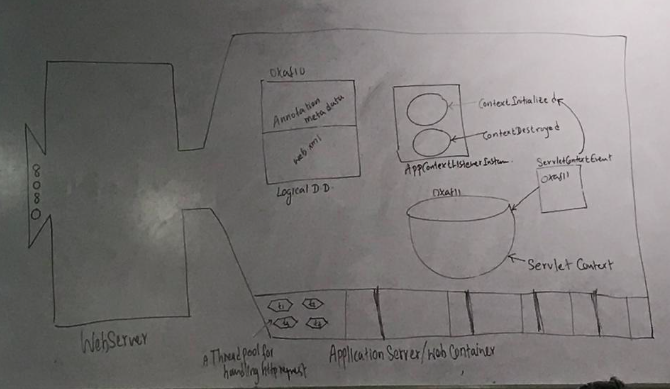 8080
WebServer
0xaf10
Annotation
meta data
web.xml
Logical DD
ContextInitialized
ContextDestroyed
AppContextListener
ServletContextEvent
0xaf11
0xaf11
Servlet Context
t1
t2
A Thread pool for
handling http request
Application Server/Web Container